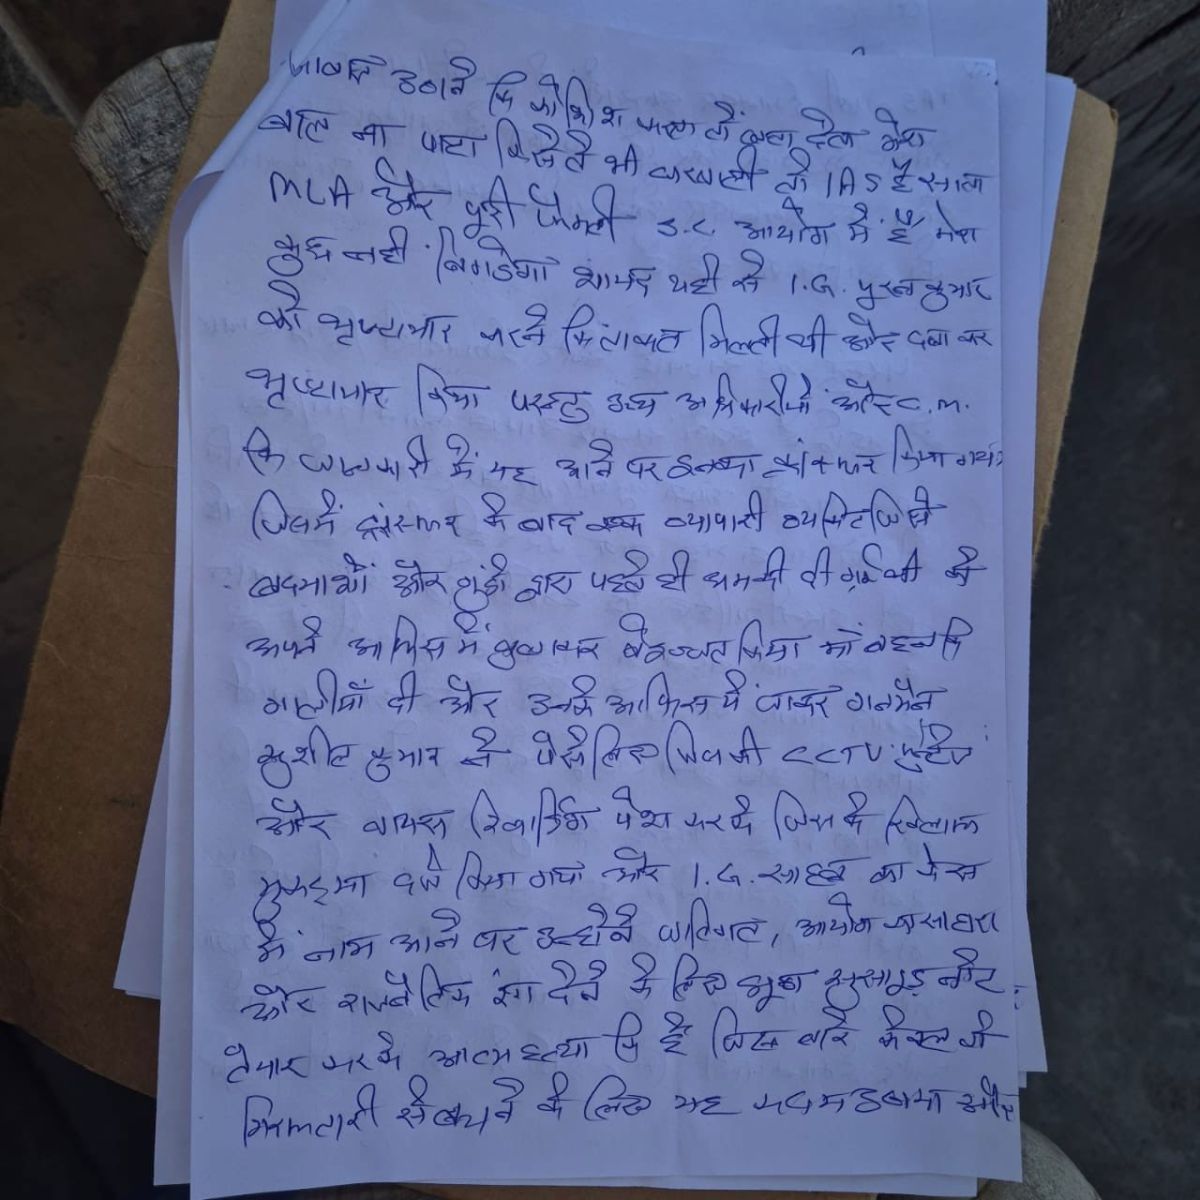 आवाज उठाने कि कोशिश करता तो बता देता मेरा
बाल ना पाटा किसीसे भी घरवाली तो IAS है साला
MLA और पूरी फैमली S.C. आयोग में है मेरा
कुछ नही बिगडेगा शायद यही से I.G. पुरन कुमार
को भ्रष्टाचार करने कि ताकत मिलती थी और दबा कर
भ्रष्टाचार किया परन्तु उच्च अधिकारीयों और C.M.
कि जानकारी में यह आने पर इनका ट्रांसफर किया गया
जिसमें ट्रांसफर के बाद एक व्यापारी व्यक्ति जिसे
बदमाशों और गुंडो द्वारा पहले ही धमकी दी गई थी ने
अपने आफिस में बुलाकर बेइज्जत किया माँ बहन कि
गालीयाँ दी और उनके आफिस में जाकर गनमैन
सुशील कुमार ने पैसे लिए जिसकी CCTV फुटेज
और वायस रिकार्डिंग पेश करके जिसके खिलाफ
मुकदमा दर्ज किया गया और I.G. साहब का केस
में नाम आने पर उन्होंने जातिगत, आयोग का सहारा
और राजनैतिक रंग देने के लिए झूठा सुसाइड नोट
तैयार करके आत्महत्या कि है जिस बारे केवल की
गिरफ्तारी से बचने के लिए यह कदम उठाया और